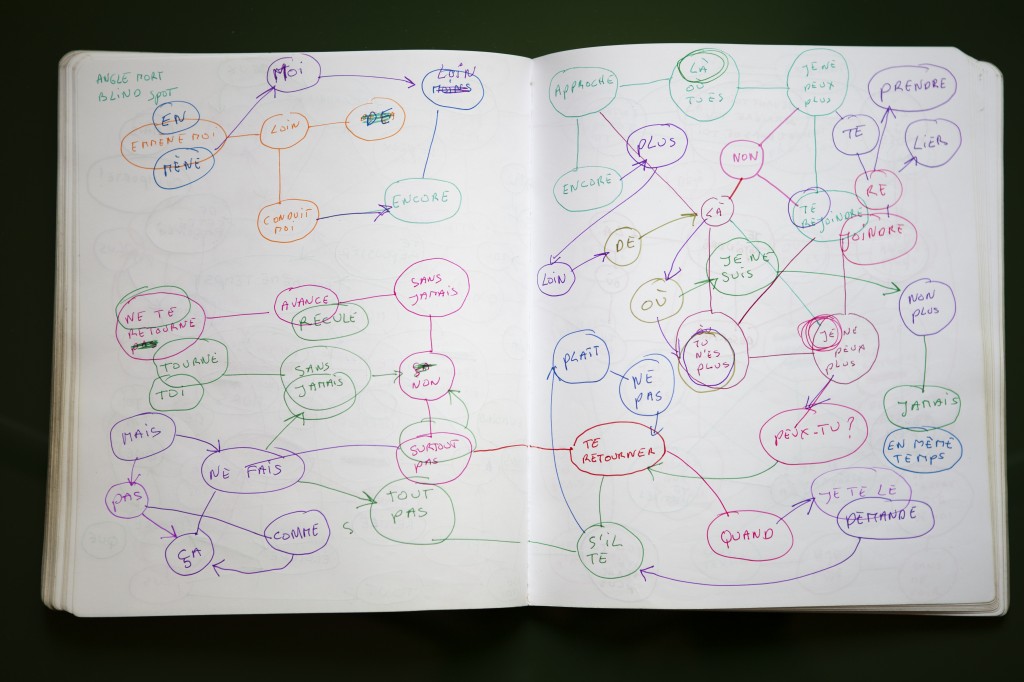 ANGLE MORT
BLIND SPOT
MOI
LOIN
MOINS
EN
EMMÈNE MOI
MÈNE
LOIN
DE
CONDUIT
MOI
ENCORE
NE TE
RETOURNE
PAS
AVANCE
RECULE
SANS
JAMAIS
TOURNE
TOI
SANS
JAMAIS
NON
MAIS
NE FAIS
SURTOUT
PAS
PAS
ÇA
COMME
S
TOUT
PAS
APPROCHE
LÀ
OÙ
TU ES
JE NE
PEUX
PLUS
PRENDRE
TE
LIER
PLUS
NON
ENCORE
RE
TE
REJOINDRE
JOINDRE
LÀ
DE
LOIN
JE NE
SUIS
OÙ
NON
PLUS
OÙ
TU
N'ES
PLUS
JE NE
PEUX
PLUS
PLAÎT
NE
PAS
JAMAIS
EN MÊME
TEMPS
PEUX-TU ?
TE
RETOURNER
JE TE LE
DEMANDE
QUAND
S'IL
TE